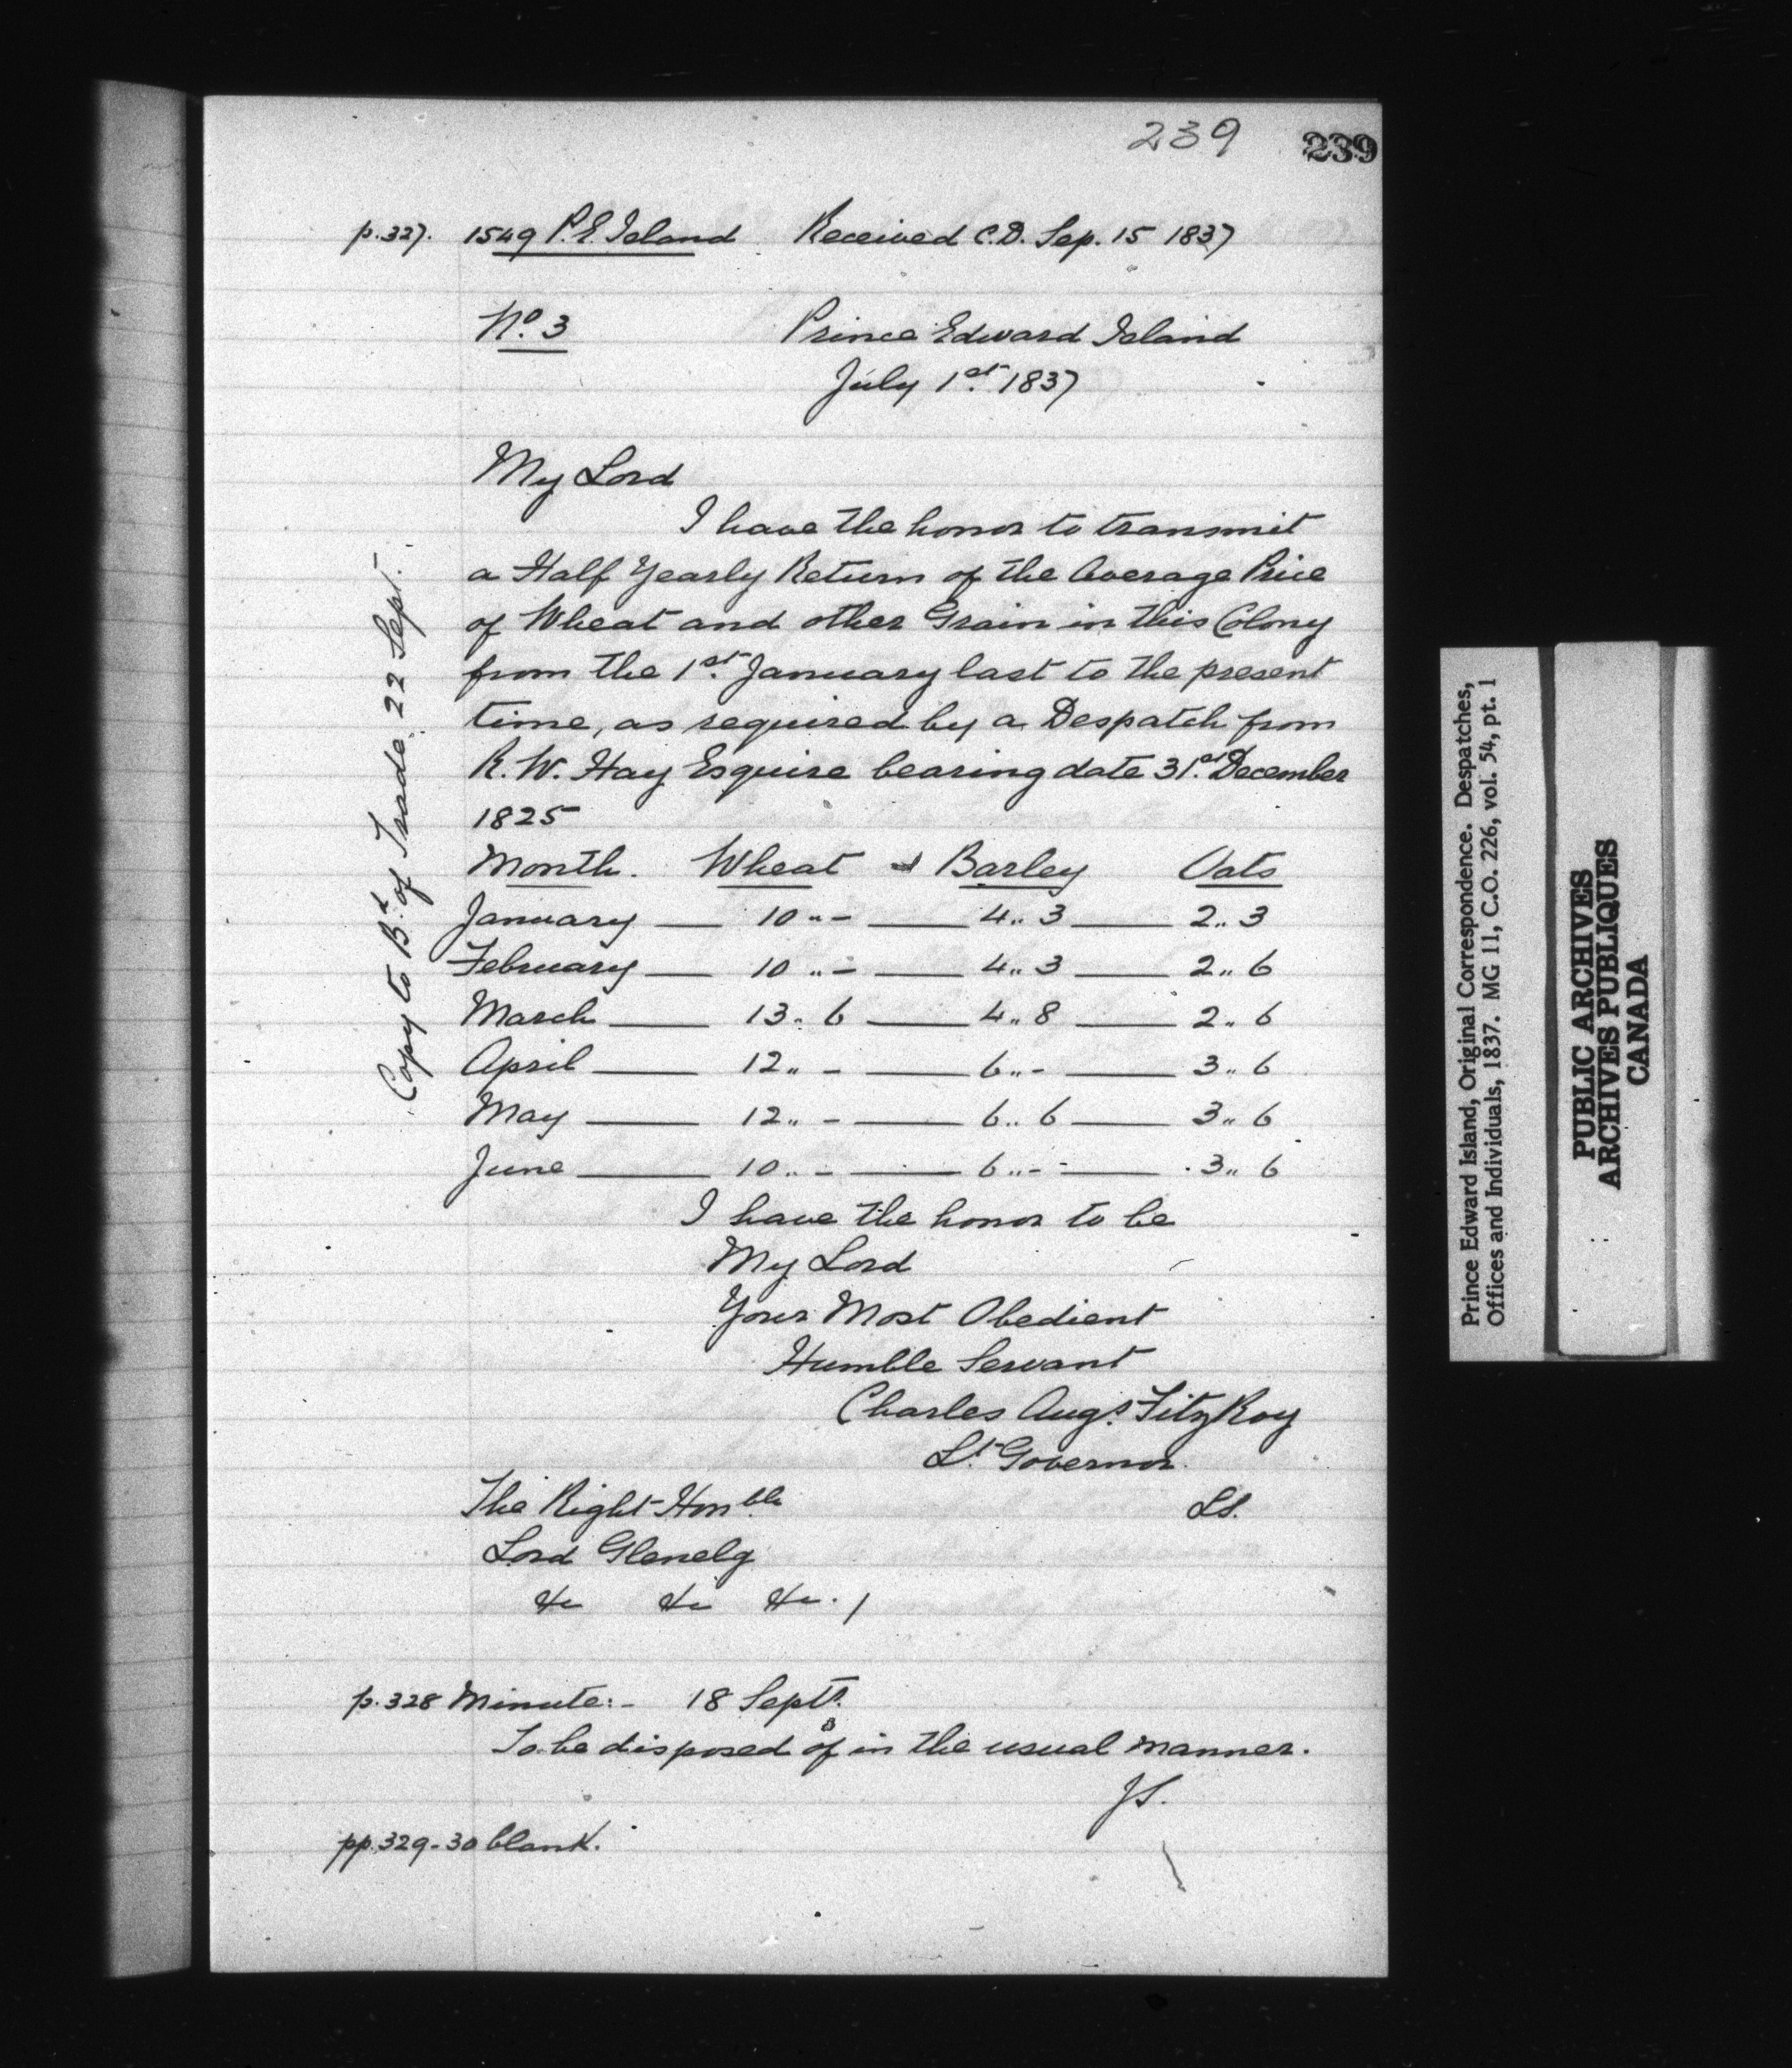 239 239
p.327. 1549 P.E. Island Received C.D. Sep. 15 1837
No. 3 Prince Edward Island
July 1st. 1837
My Lord
I have the honor to transmit
a Half Yearly Return of the Average Price
of Wheat and other Grain in this Colony
from the 1st. January last to the present
time, as required by a Despatch from
R. W. Hay Esquire bearing date 31st. December
1825
Month. Wheat Barley Oats
January — 10 „ - — 4 „ 3 — 2 „ 3
February — 10 „ - — 4 „ 3 — 2 „ 6
March — 13 „ 6 — 4 „ 8 — 2 „ 6
April — 12 „ - — 6 „ - — 3 „ 6
May — 12 „ - — 6 „ 6 — 3 „ 6
June — 10 „ - — 6 „ - — 3 „ 6
I have the honor to be
My Lord
Your Most Obedient
Humble Servant
Charles Augs. FitzRoy
Lt. Governor.
The Right Honble. LS.
Lord Glenelg
&c &c &c. /
p.328 Minute:- 18 Septr.
To be disposed of in the usual manner.
JS.
pp.329-30 blank.
Copy to Bd. of Trade. 22 Sept.
Prince Edward Island, Original Correspondence. Despatches,
Offices and Individuals, 1837. MG 11, C.O. 226, vol. 54, pt. 1
PUBLIC ARCHIVES
ARCHIVES PUBLIQUES
CANADA